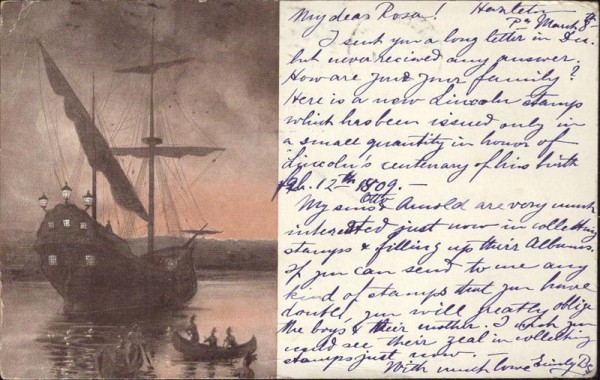 My dear Rosa! Hazleton
Pa March 8th
I sent you a long letter in Dec.
but never recieved any answer.
How are you & your family?
Here is a new Lincoln stamp
which has been issued only in
a small quantity in honor of
Lincoln's centenary of his birth
Feb. 12th 1809.—
My sons Otto & Arnold are very much
interested just now in collecting
stamps & filling up their Albums.
If you can send to me any
kind of stamps that you have
double, you will greatly oblige
the boys & their mother. I wish you
could see their zeal in collecting
stamps just now.
With much love Emily